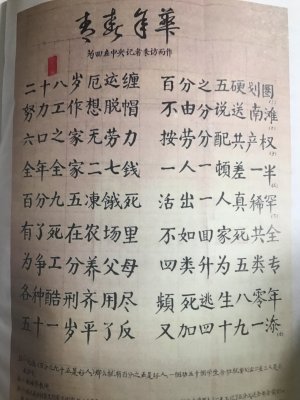 青春年華
为四五中央记者来访而作
二十八岁厄运缠 百分之五硬划圈
努力工作想脱帽 不由分说送南滩
六口之家无劳力 按劳分配共产权
全年全家二七钱 一人一顿差一半
百分九五冻饿死 活出一人真稀罕
有了死在农场里 不如回家死共全
为争工分养父母 四类升为五类专
各种酷刑齐用尽 頻死逃生八零年
五十一岁平了反 又加四十九一添